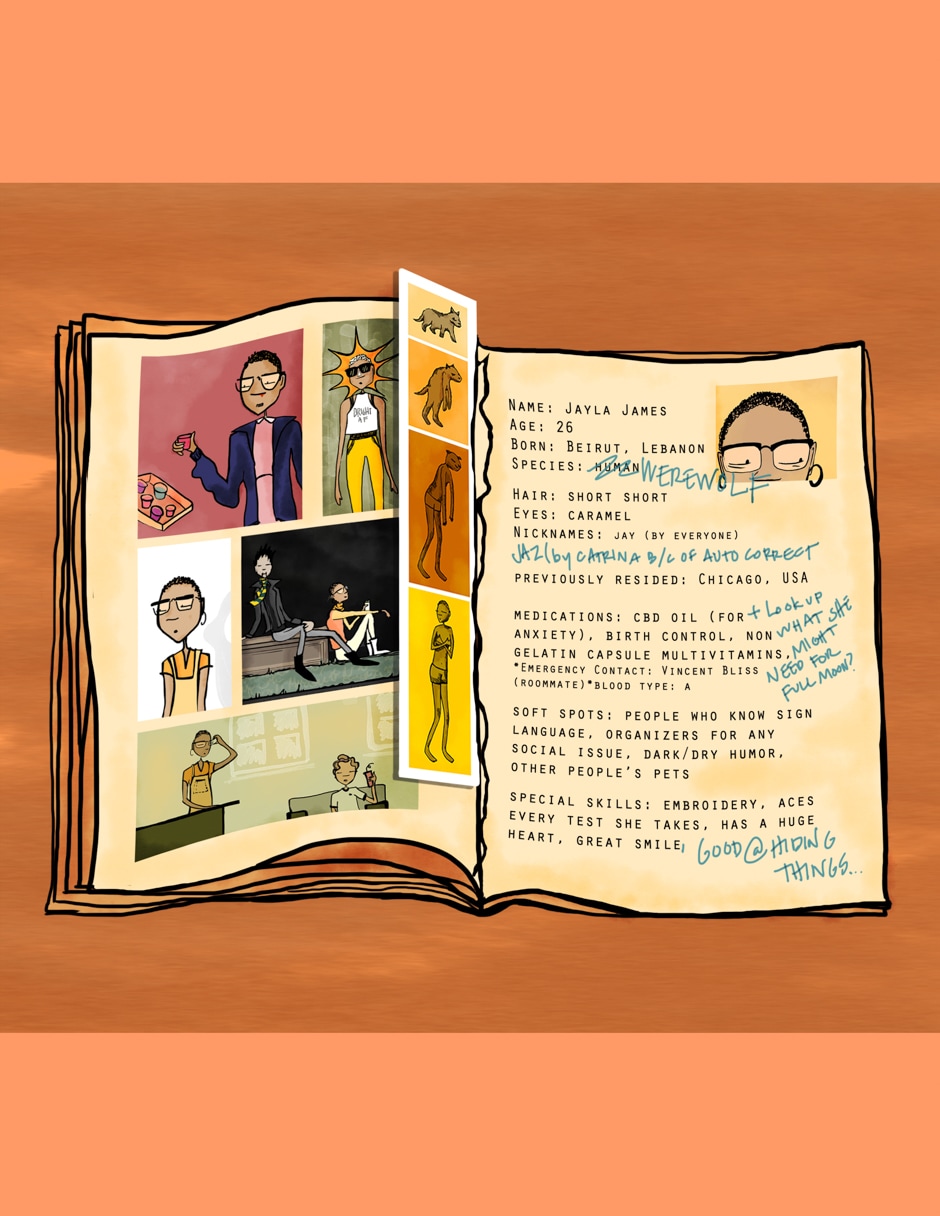 NAME: JAYLA JAMES
AGE: 26
BORN: BEIRUT, LEBANON
SPECIES: HUMAN WEREWOLF
HAIR: SHORT SHORT
EYES: CARAMEL
NICKNAMES: JAY (BY EVERYONE)
JAZ (by CATRINA B/C OF AUTO CORRECT
PREVIOUSLY RESIDED: CHICAGO, USA
MEDICATIONS: CBD OIL (FOR
ANXIETY), BIRTH CONTROL, NON
GELATIN CAPSULE MULTIVITAMINS,
*EMERGENCY CONTACT: VINCENT BLISS
(ROOMMATE)*BLOOD TYPE: A
+ LOOK UP
WHAT SHE
MIGHT
NEED FOR
FULL MOON?
SOFT SPOTS: PEOPLE WHO KNOW SIGN
LANGUAGE, ORGANIZERS FOR ANY
SOCIAL ISSUE, DARK/DRY HUMOR,
OTHER PEOPLE'S PETS
SPECIAL SKILLS: EMBROIDERY, ACES
EVERY TEST SHE TAKES, HAS A HUGE
HEART, GREAT SMILE, GOOD @ HIDING
THINGS...